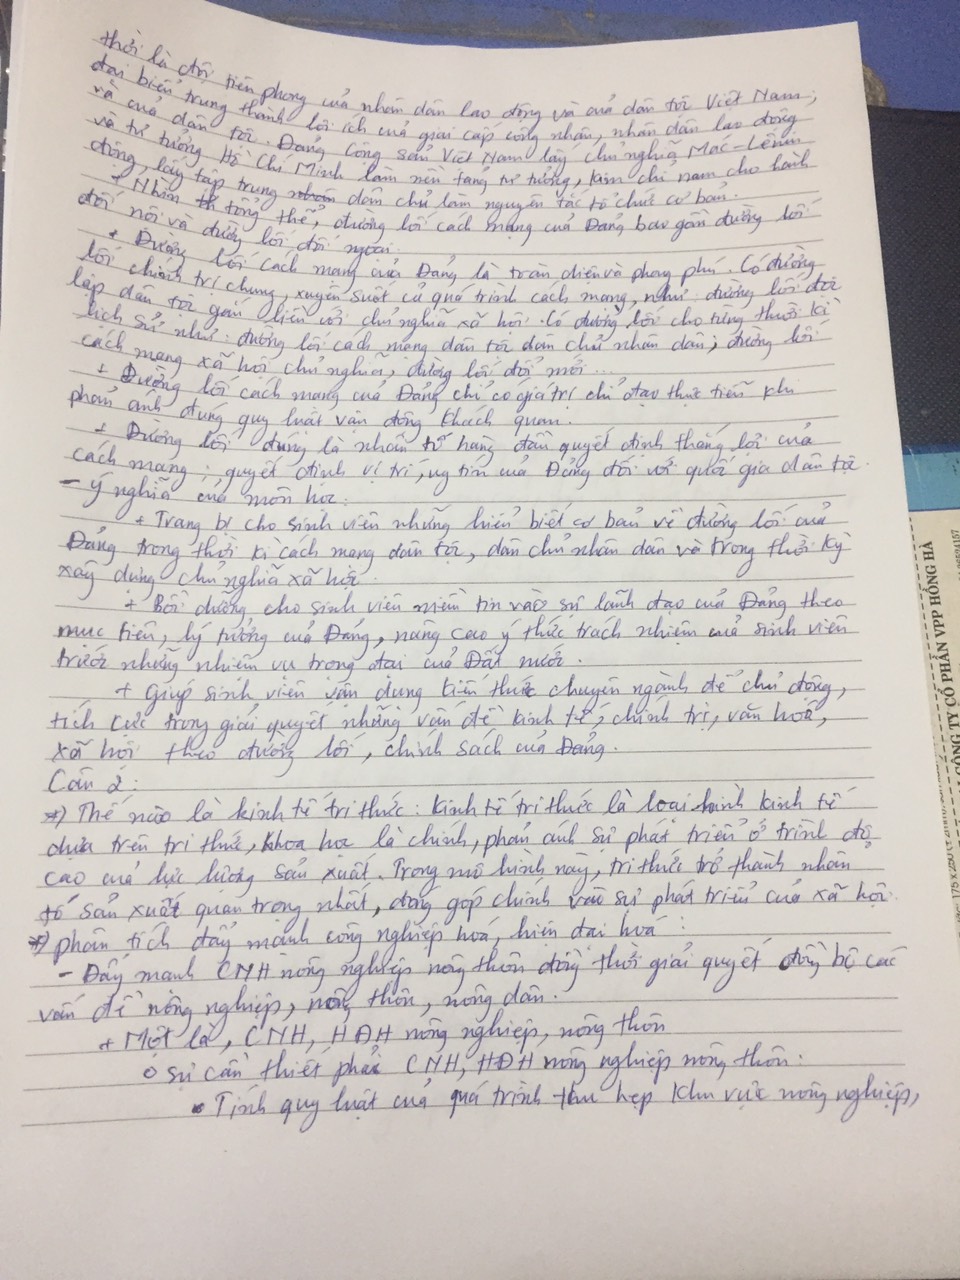 thời là đội tiên phong của nhân dân lao động và của dân tộc Việt Nam;
đại biểu trung thành lợi ích của giai cấp công nhân, nhân dân lao động
và của dân tộc. Đảng Cộng sản Việt Nam lấy chủ nghĩa Mác-Lênin
và tư tưởng Hồ Chí Minh làm nền tảng tư tưởng, kim chỉ nam cho hành
động, lấy tập trung dân chủ làm nguyên tắc tổ chức cơ bản.
+ Nhìn tổng thể, đường lối cách mạng của Đảng bao gồm đường lối
đối nội và đường lối đối ngoại.
+ Đường lối cách mạng của Đảng là toàn diện và phong phú. Có đường
lối chính trị chung, xuyên suốt cả quá trình cách mạng, như: đường lối độc
lập dân tộc gắn liền với chủ nghĩa xã hội. Có đường lối cho từng thời kì
lịch sử như: đường lối cách mạng dân tộc dân chủ nhân dân; đường lối
cách mạng xã hội chủ nghĩa, đường lối đổi mới...
+ Đường lối cách mạng của Đảng chỉ có giá trị chỉ đạo thực tiễn khi
phản ánh đúng quy luật vận động khách quan.
+ Đường lối đúng là nhân tố hàng đầu quyết định thắng lợi của
cách mạng; quyết định vị trí, uy tín của Đảng đối với quốc gia dân tộc.
- Ý nghĩa của môn học:
+ Trang bị cho sinh viên những hiểu biết cơ bản về đường lối của
Đảng trong thời kì cách mạng dân tộc, dân chủ nhân dân và trong thời kỳ
xây dựng chủ nghĩa xã hội.
+ Bồi dưỡng cho sinh viên niềm tin vào sự lãnh đạo của Đảng theo
mục tiêu, lý tưởng của Đảng, nâng cao ý thức trách nhiệm của sinh viên
trước những nhiệm vụ trọng đại của Đất nước.
+ Giúp sinh viên vận dụng kiến thức chuyên ngành để chủ động,
tích cực trong giải quyết những vấn đề kinh tế, chính trị, văn hoá,
xã hội theo đường lối, chính sách của Đảng.
Câu 2:
*) Thế nào là kinh tế tri thức: Kinh tế tri thức là loại hình kinh tế
dựa trên tri thức, khoa học là chính, phản ánh sự phát triển ở trình độ
cao của lực lượng sản xuất. Trong mô hình này, tri thức trở thành nhân
tố sản xuất quan trọng nhất, đóng góp chính vào sự phát triển của xã hội.
*) phân tích đẩy mạnh công nghiệp hoá, hiện đại hoá:
- Đẩy mạnh CNH nông nghiệp nông thôn đồng thời giải quyết đồng bộ các
vấn đề nông nghiệp, nông thôn, nông dân.
+ Một là, CNH, HĐH nông nghiệp, nông thôn
o sự cần thiết phải CNH, HĐH nông nghiệp nông thôn.
• Tính quy luật của quá trình thu hẹp khu vực nông nghiệp,
CÔNG TY CỔ PHẦN VPP HỒNG HÀ